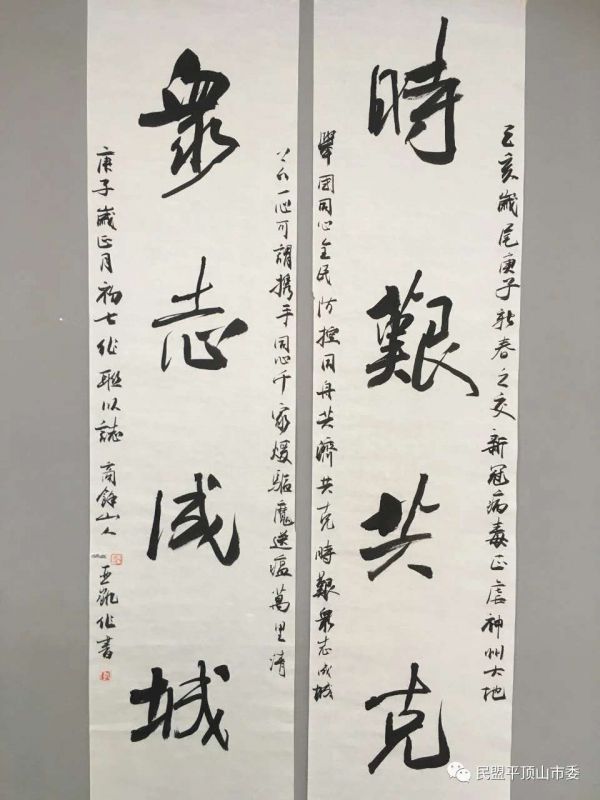 己亥歲尾庚子新春之交新冠病毒正虐神州大地
時艱共克
舉国同心全民防控同舟共濟共克時艱眾志成城
一心可謂携手同心千家煖驅魔送瘟萬里清
眾志成城
庚子歲正月初七作聯以誌 商餘山人
亚凱作書
民盟平顶山市委